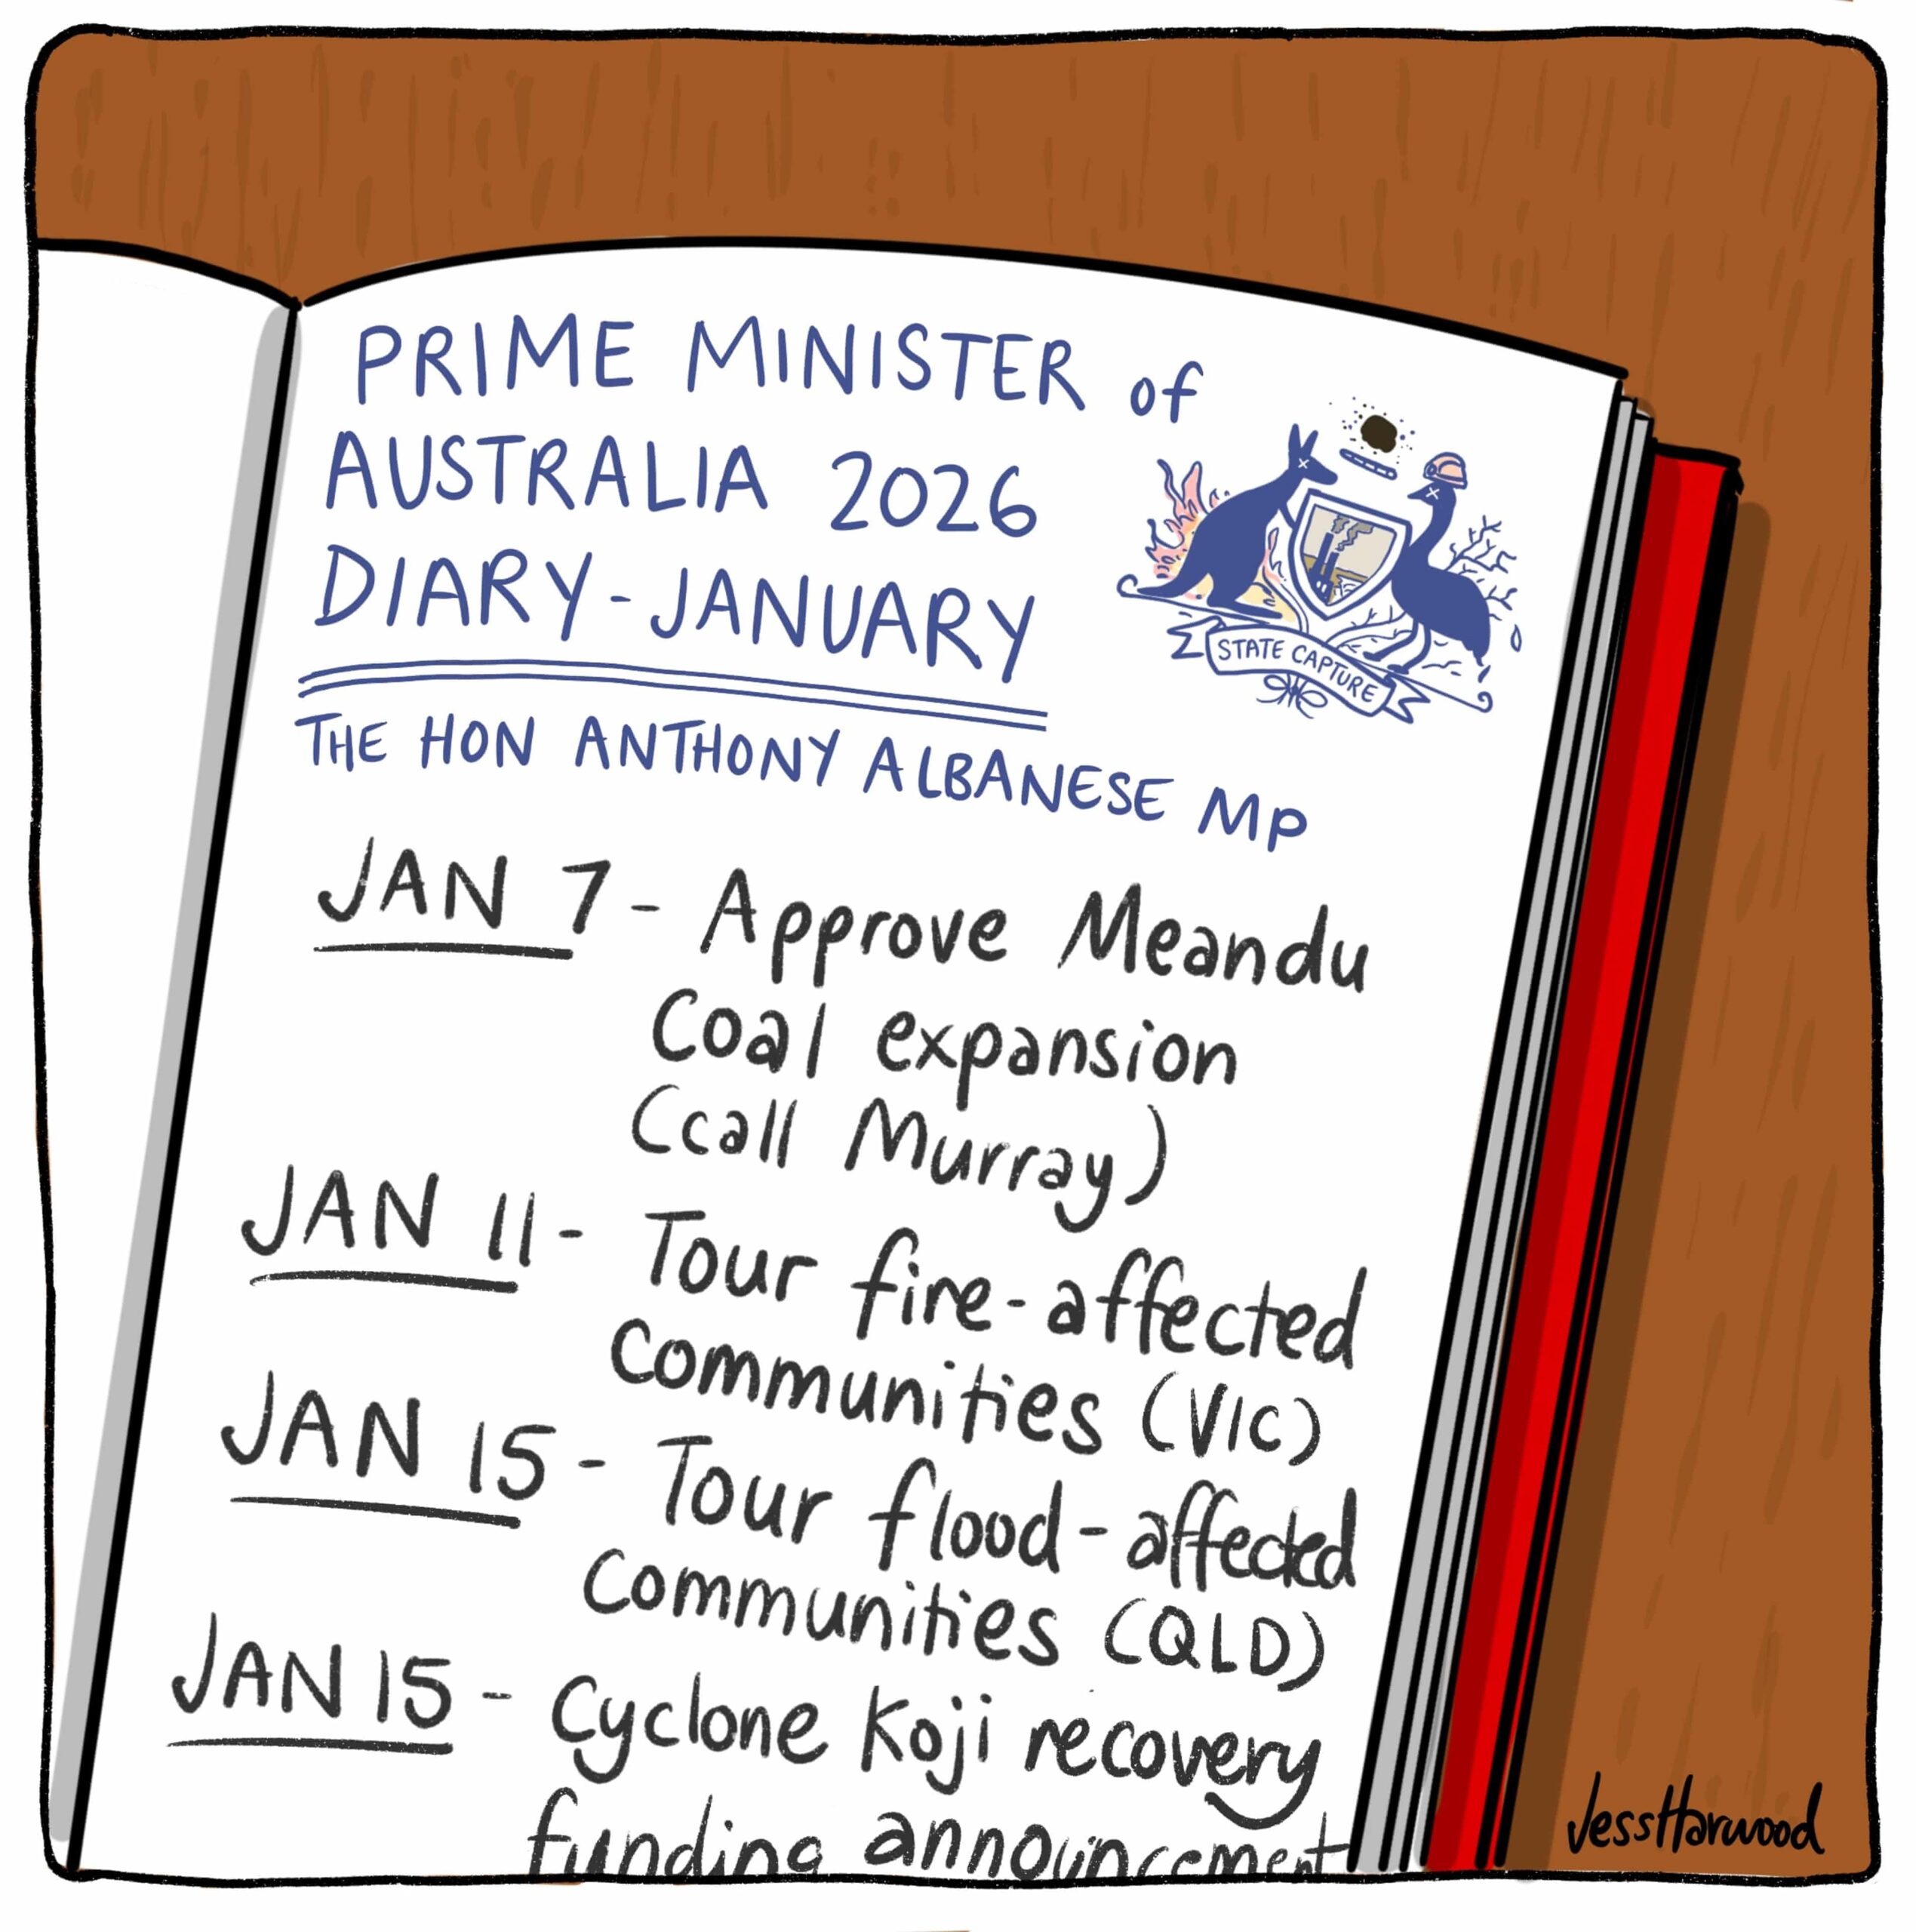 PRIME MINISTER of
AUSTRALIA 2026
DIARY - JANUARY
STATE CAPTURE
THE HON ANTHONY ALBANESE MP
JAN 7 - Approve Meandu
Coal expansion
(call Murray)
JAN 11 - Tour fire-affected
communities (VIC)
JAN 15 - Tour flood-affected
communities (QLD)
JAN 15 - Cyclone Koji recovery
funding announcement
JessHarwood